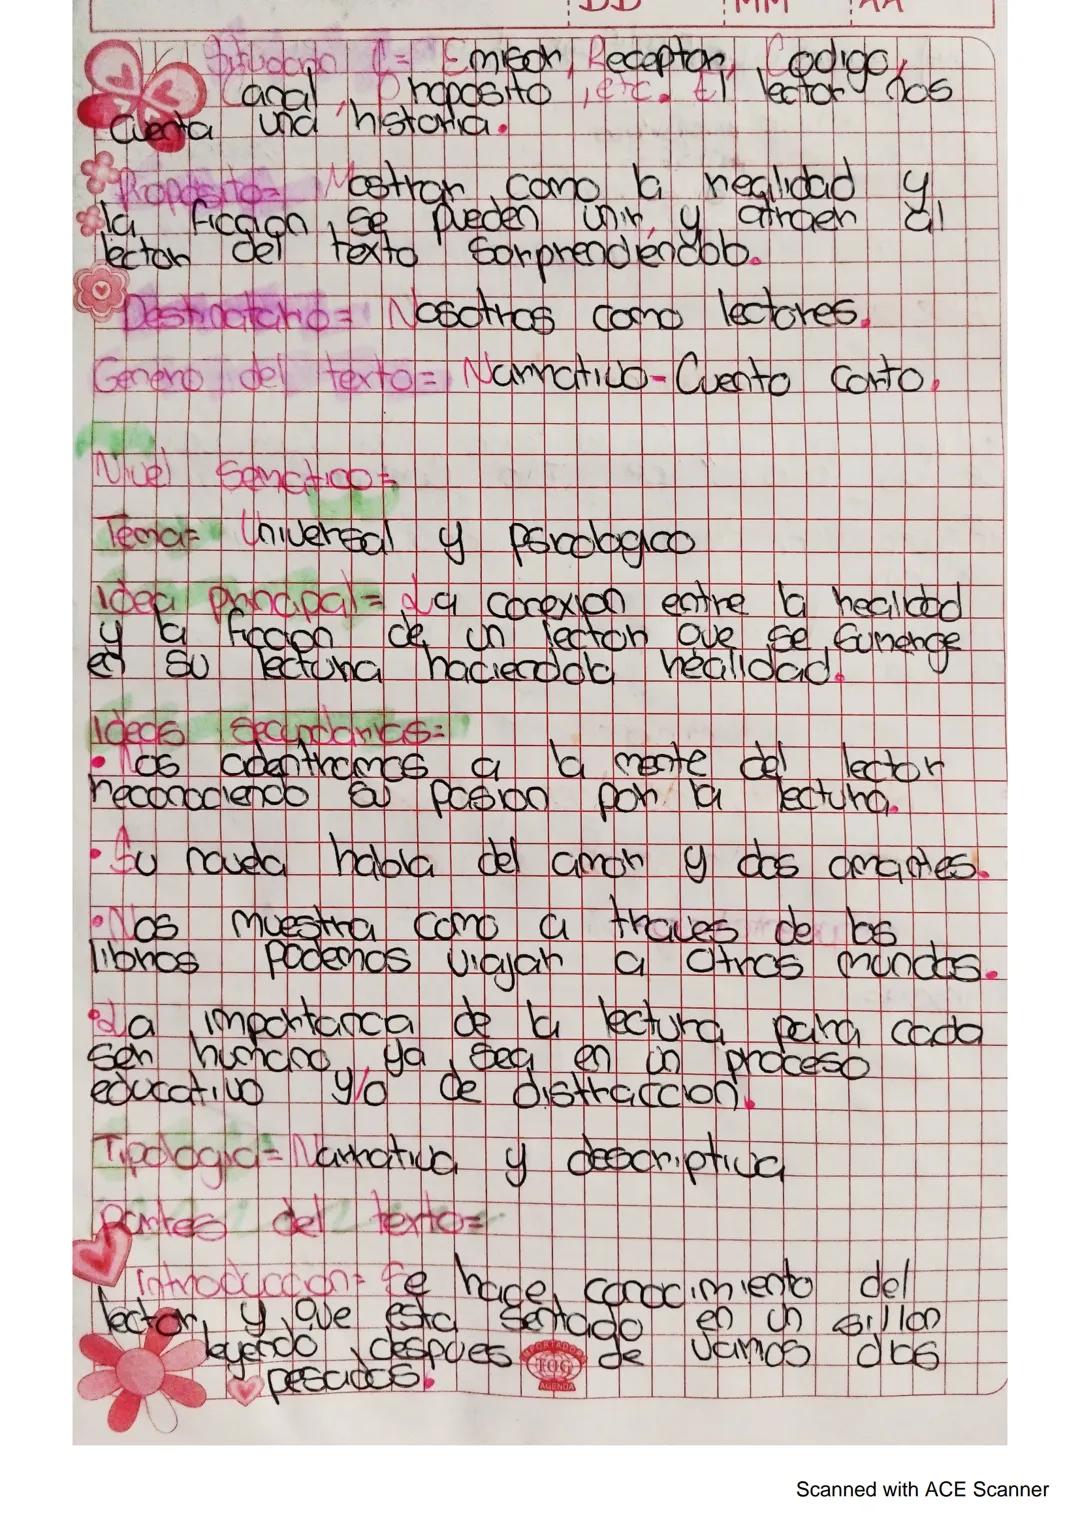 DD MM AA
Situación C= Emisor, Receptor, Codigo,
Canal, Proposito, etc. El lector nos
cuenta una historia.
Proposito= Mostrar como la realidad y
la ficcion se pueden unir y atraen al
lector del texto sorprendiendolo.
Destinatario= Nosotros como lectores.
Genero del texto= Narrativo-Cuento corto.
Nivel Semantico=
Tema= Universal y psicologico
Idea principal= La conexion entre la realidad
y la ficcion de un lector que se sumerge
en su lectura haciendola realidad.
Ideas Secundarias=
• Nos adentramos a la mente del lector
reconociendo su pasion por la lectura.
• Su novela habla del amor y dos amantes.
• Nos muestra como a traves de los
libros podemos viajar a otros mundos.
• La importancia de la lectura para cada
ser humano, ya sea en un proceso
educativo y/o de distraccion.
Tipologia= Narrativa y descriptiva
Partes del texto=
Introduccion= Se hace conocimiento del
lector, y que esta sentado en un sillon
leyendo, despues de varios dias
pesados.
IMPORTADORA
TOG
AGENDA
Scanned with ACE Scanner